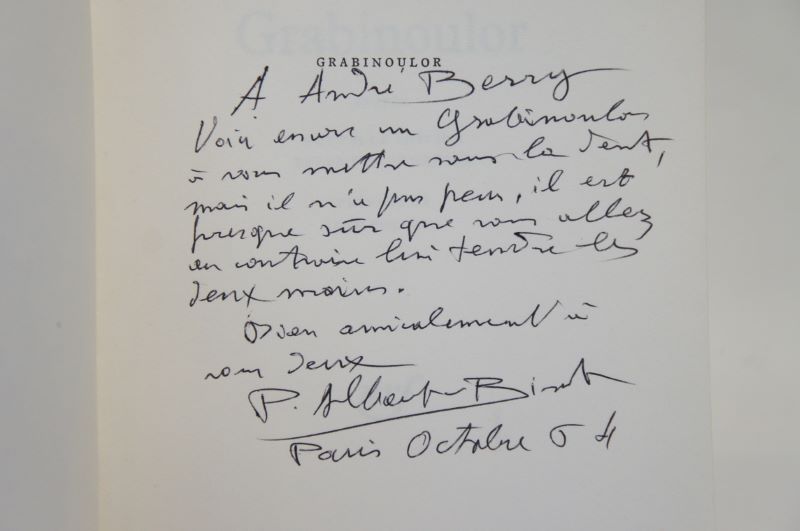 Grabinoulor
GRABINOULOR
A André Berry
Voici encore un Grabinoulor
à vous mettre sous la dent,
mais il n'a pas peur, il est
presque sûr que vous allez
au contraire lui tendre les
deux mains.
Bien amicalement à
vous deux
P. Albert-Birot
Paris Octobre 64